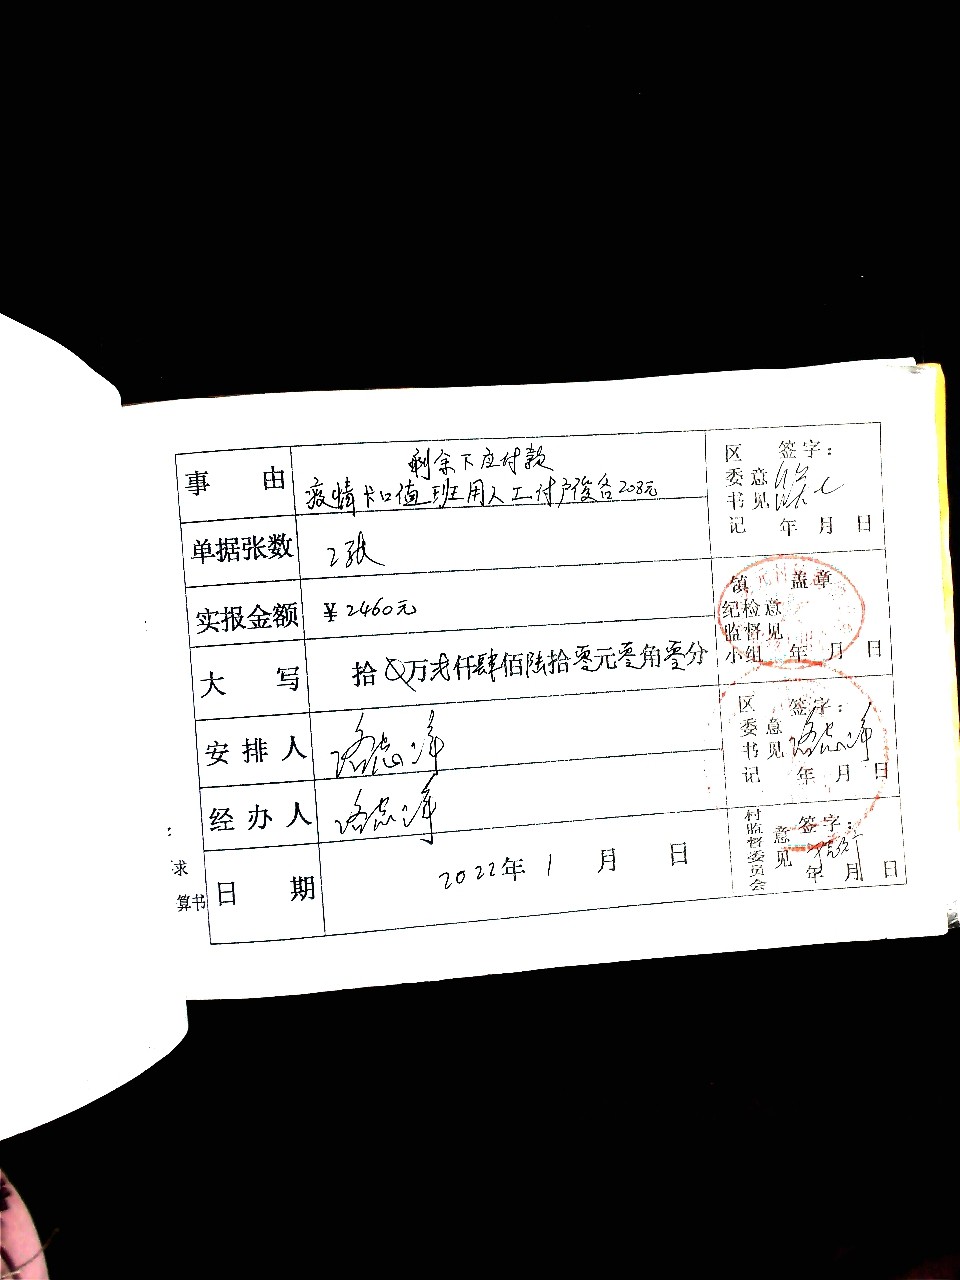 事 由
剩余下应付款
疫情卡口值班用人工付卢俊各208元
单据张数 2张
实报金额 ¥2460元
大 写 拾 万贰仟肆佰陆拾零元零角零分
安 排 人 路志泽
经 办 人 路志泽
日 期 2022年 1 月 日
区委书记意见 签字:
年 月 日
镇纪检监督小组意见 盖章
年 月 日
区委书记意见 签字:
路志泽
年 月 日
村监督委员会意见 签字:
年 月 日
求
算书